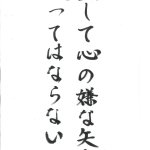 して心の嫌な矢
ってはならない